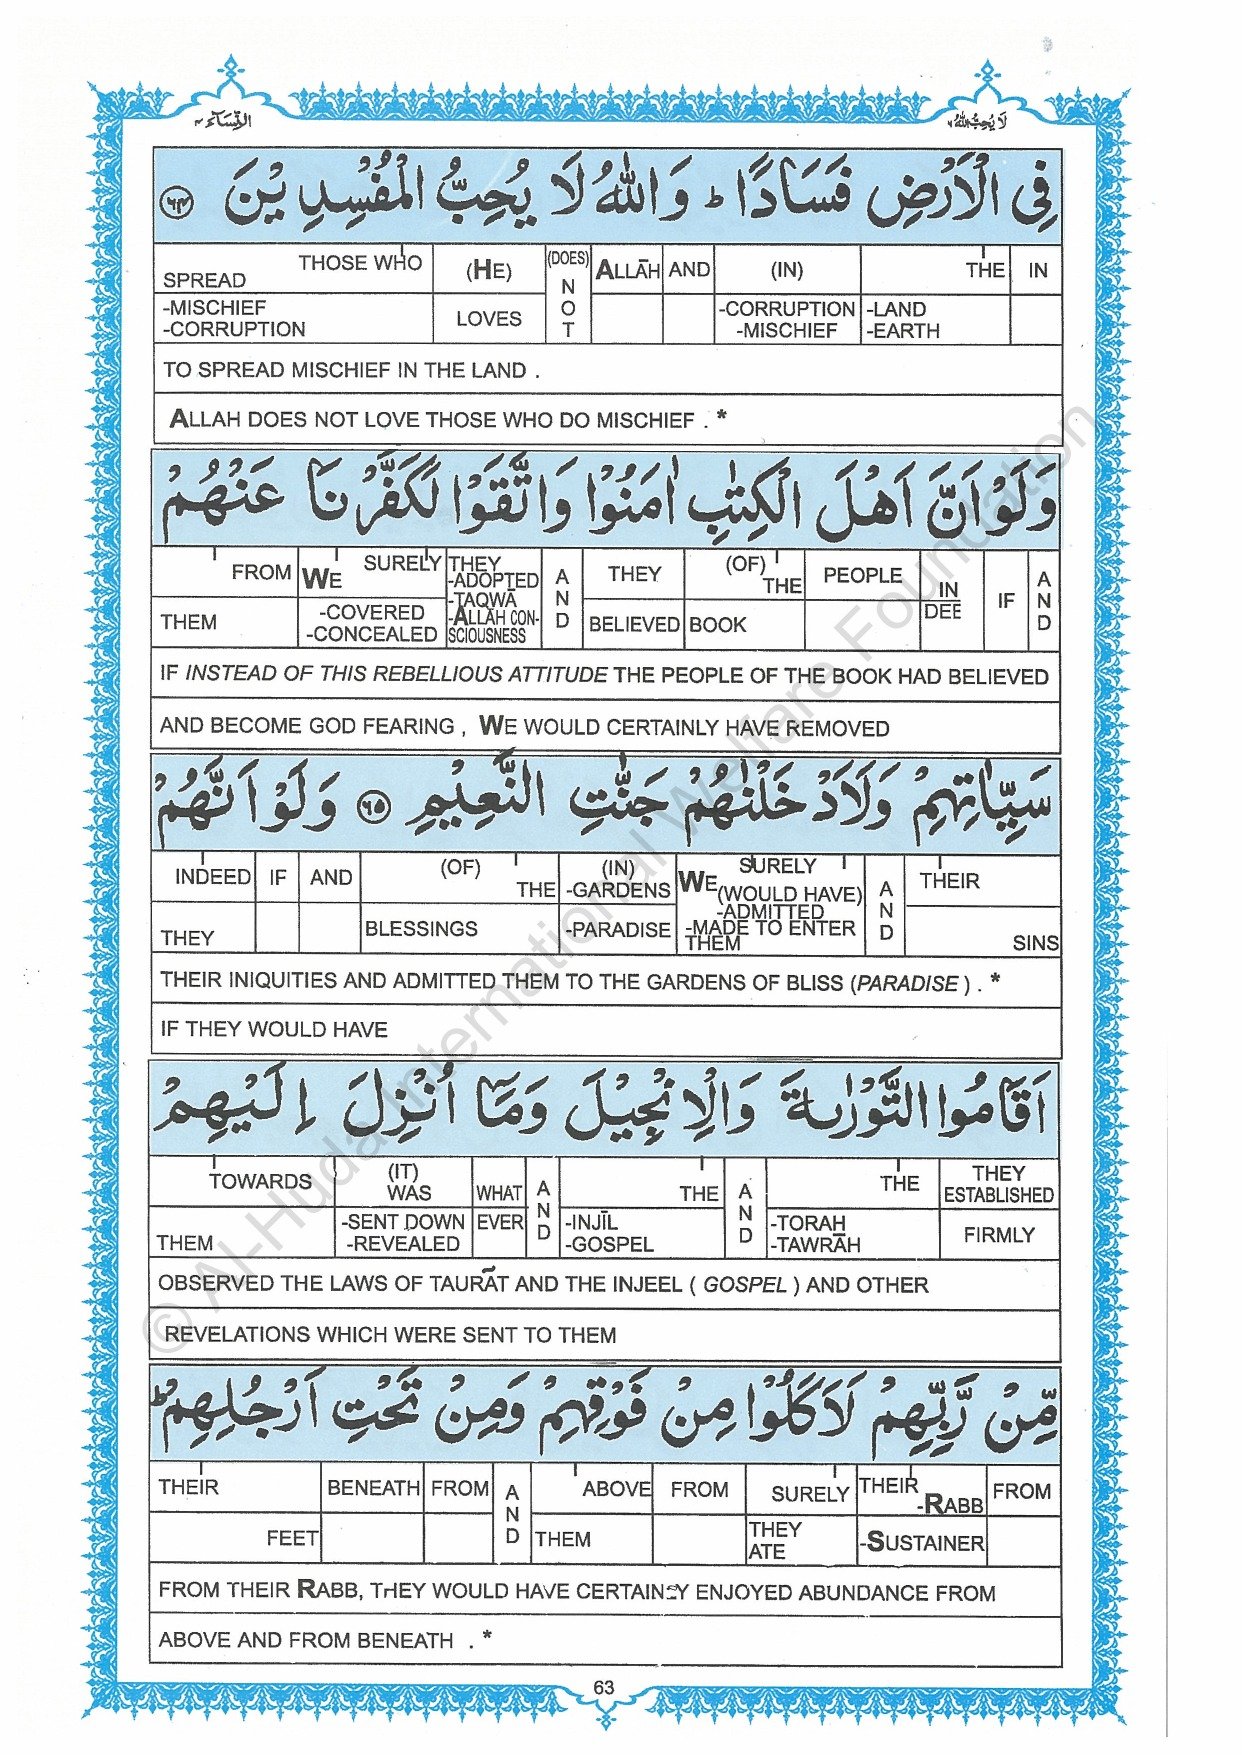 النِّسَآء ٤
لَا يُحِبُّ اللّٰهُ ٦
فِي الْاَرْضِ فَسَادًا ؕ وَاللّٰهُ لَا يُحِبُّ الْمُفْسِدِيْنَ ۝٦٤
SPREAD THOSE WHO (HE) (DOES) NOT ALLĀH AND (IN) THE IN
-MISCHIEF -CORRUPTION LOVES -CORRUPTION -MISCHIEF -LAND -EARTH
TO SPREAD MISCHIEF IN THE LAND .
ALLAH DOES NOT LOVE THOSE WHO DO MISCHIEF . *
وَلَوْ اَنَّ اَهْلَ الْكِتٰبِ اٰمَنُوْا وَاتَّقَوْا لَكَفَّرْنَا عَنْهُمْ
FROM WE SURELY THEY -ADOPTED -TAQWĀ -ALLĀH CON-SCIOUSNESS AND THEY (OF) THE PEOPLE INDEED IF AND
THEM -COVERED -CONCEALED BELIEVED BOOK
IF INSTEAD OF THIS REBELLIOUS ATTITUDE THE PEOPLE OF THE BOOK HAD BELIEVED
AND BECOME GOD FEARING , WE WOULD CERTAINLY HAVE REMOVED
سَيِّاٰتِهِمْ وَلَاَدْخَلْنٰهُمْ جَنّٰتِ النَّعِيْمِ ۝٦٥ وَلَوْ اَنَّهُمْ
INDEED IF AND (OF) THE (IN) -GARDENS WE SURELY (WOULD HAVE) -ADMITTED AND THEIR
THEY BLESSINGS -PARADISE -MADE TO ENTER THEM SINS
THEIR INIQUITIES AND ADMITTED THEM TO THE GARDENS OF BLISS (PARADISE ) . *
IF THEY WOULD HAVE
اَقَامُوا التَّوْرٰىةَ وَالْاِنْجِيْلَ وَمَآ اُنْزِلَ اِلَيْهِمْ
TOWARDS (IT) WAS WHAT AND THE AND THE THEY ESTABLISHED
THEM -SENT DOWN -REVEALED EVER -INJĪL -GOSPEL -TORAH -TAWRĀH FIRMLY
OBSERVED THE LAWS OF TAURĀT AND THE INJEEL ( GOSPEL ) AND OTHER
REVELATIONS WHICH WERE SENT TO THEM
مِّنْ رَّبِّهِمْ لَاَكَلُوْا مِنْ فَوْقِهِمْ وَمِنْ تَحْتِ اَرْجُلِهِمْ ؕ
THEIR BENEATH FROM AND ABOVE FROM SURELY THEIR -RABB FROM
FEET THEM THEY ATE -SUSTAINER
FROM THEIR RABB, THEY WOULD HAVE CERTAINLY ENJOYED ABUNDANCE FROM
ABOVE AND FROM BENEATH . *
63
© Al-Huda International Welfare Foundation